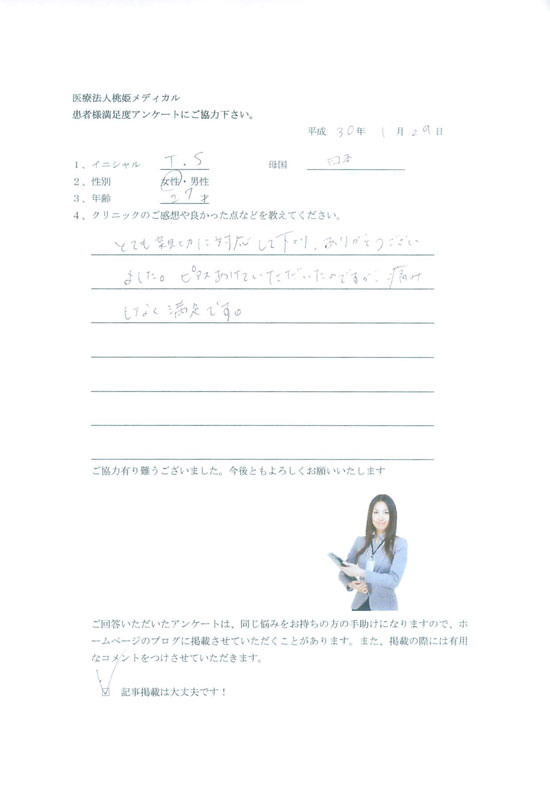 医療法人桃姫メディカル
患者様満足度アンケートにご協力下さい。
平成 30年 1月 29日
1、イニシャル T.S 母国 日本
2、性別 女性・男性
3、年齢 27才
4、クリニックのご感想や良かった点などを教えてください。
とても親切に対応して下り、ありがとうござい
ました。ピアスあけていただいたのですが、痛み
もなく満足です。
ご協力有り難うございました。今後ともよろしくお願いいたします
ご回答いただいたアンケートは、同じ悩みをお持ちの方の手助けになりますので、ホ
ームページのブログに掲載させていただくことがあります。また、掲載の際には有用
なコメントをつけさせていただきます。
☑ 記事掲載は大丈夫です！